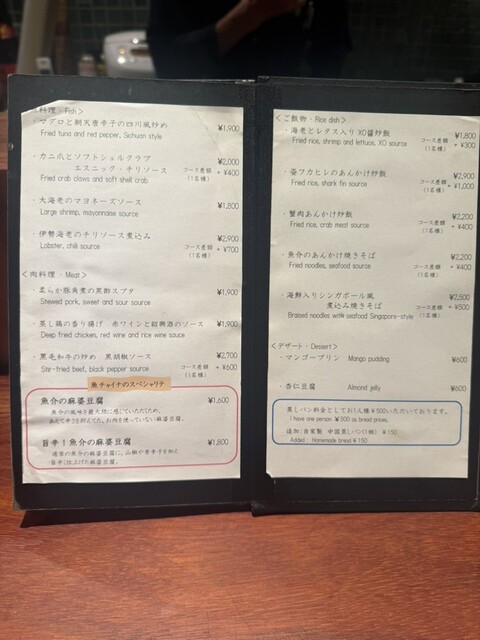 料理・Fish>
・マグロと朝天唐辛子の四川風炒め ¥1,900
Fried tuna and red pepper, Sichuan style
・カニ爪とソフトシェルクラブ ¥2,000
エスニック・チリソース コース差額 + ¥400
Fried crab claws and soft shell crab (1名様)
・大海老のマヨネーズソース ¥1,800
Large shrimp, mayonnaise source
・伊勢海老のチリソース煮込み ¥2,900
Lobster, chili source コース差額 + ¥700
(1名様)
<肉料理・Meat>
・柔らか豚角煮の黒酢スブタ ¥1,900
Stewed pork, sweet and sour source
・蒸し鶏の香り揚げ 赤ワインと紹興酒のソース ¥1,900
Deep fried chicken, red wine and rice wine sauce
・黒毛和牛の炒め 黒胡椒ソース ¥2,700
Stir-fried beef, black pepper source コース差額 + ¥600
(1名様)
魚チャイナのスペシャリテ
魚介の麻婆豆腐 ¥1,600
魚介の風味を最大限に感じていただくため、
あえて辛さを抑えてた、お肉を使っていない麻婆豆腐。
旨辛!魚介の麻婆豆腐 ¥1,800
通常の魚介の麻婆豆腐に、山椒や青辛子を加え
旨辛に仕上げた麻婆豆腐。
<ご飯物・Rice dish>
・海老とレタス入りXO醤炒飯 ¥1,800
Fried rice, shrimp and lettuos, XO source コース差額 + ¥300
(1名様)
・姿フカヒレのあんかけ炒飯 ¥2,900
Fried rice, shark fin source コース差額 + ¥1,000
(1名様)
・蟹肉あんかけ炒飯 ¥2,200
Fried rice, crab meat source コース差額 + ¥400
(1名様)
・魚介のあんかけ焼きそば ¥2,200
Fried noodles, seafood source コース差額 + ¥400
(1名様)
・海鮮入りシンガポール風 ¥2,500
煮込み焼きそば コース差額 + ¥500
Braised noodles with seafood Singapore-style (1名様)
<デザート・Dessert>
・マンゴープリン Mango pudding ¥600
・杏仁豆腐 Almond jelly ¥600
蒸しパン料金としてお1人様¥500いただいております。
I have one person ¥500 as bread prices.
追加:自家製 中国蒸しパン(1個) ¥150
Added : Homemade bread ¥150